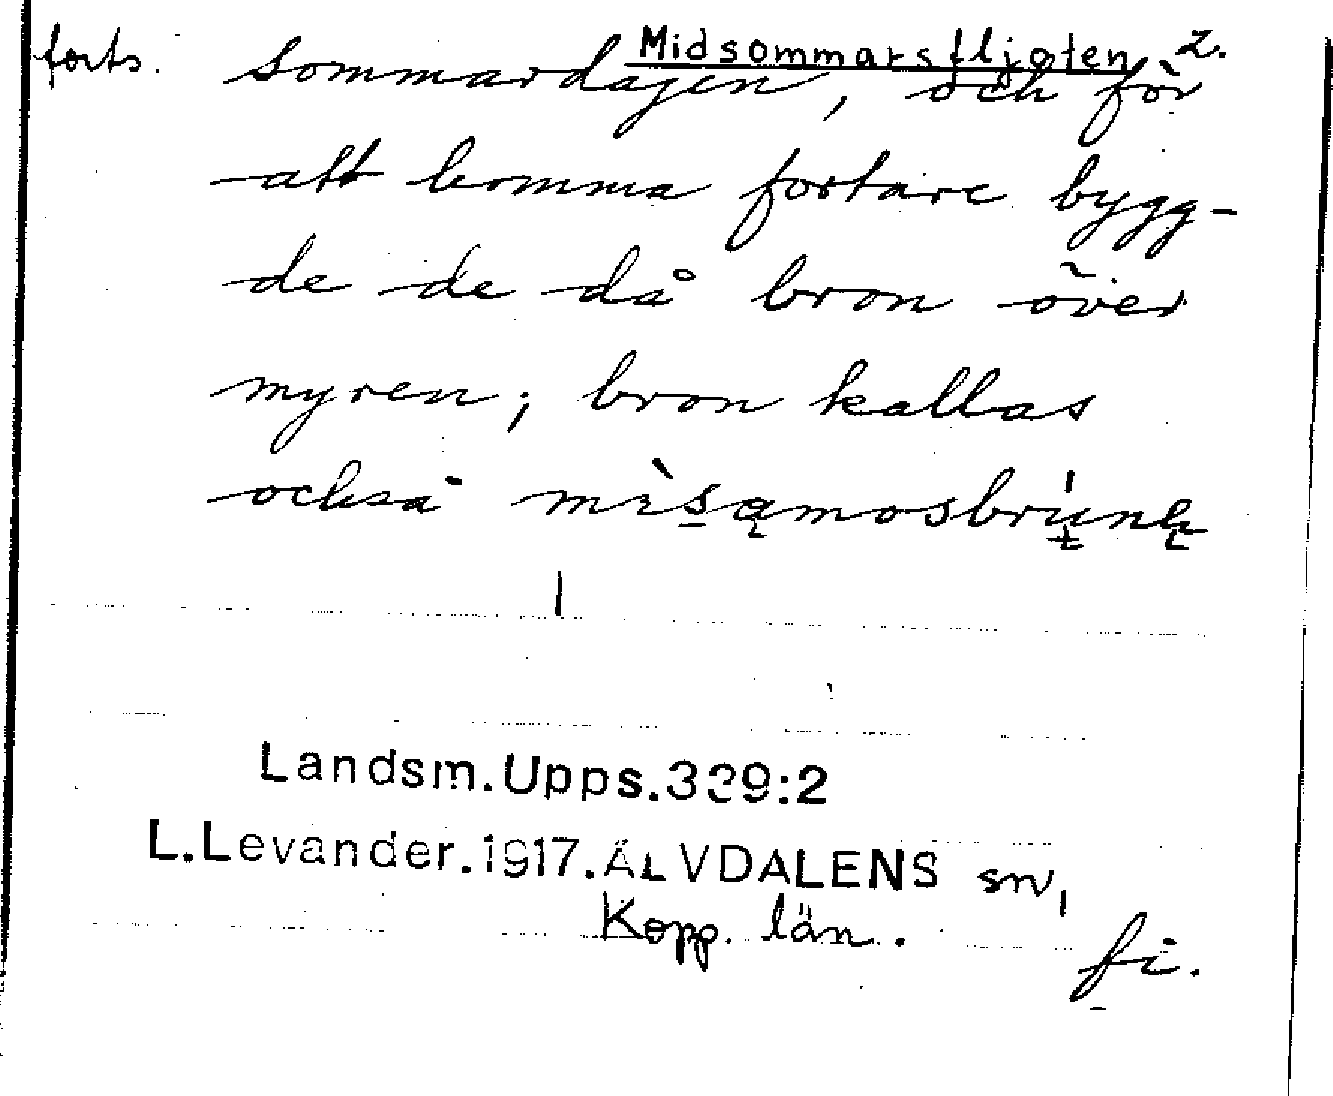 forts. Midsommarsfljoten 2.
sommardagen, och för
att komma fortare bygg-
de de då bron över
myren; bron kallas
också mìsąmosbrúnę
Landsm.Upps.339:2
L.Levander.1917.ÄLVDALENS sn,
Kopp. län.
fi.